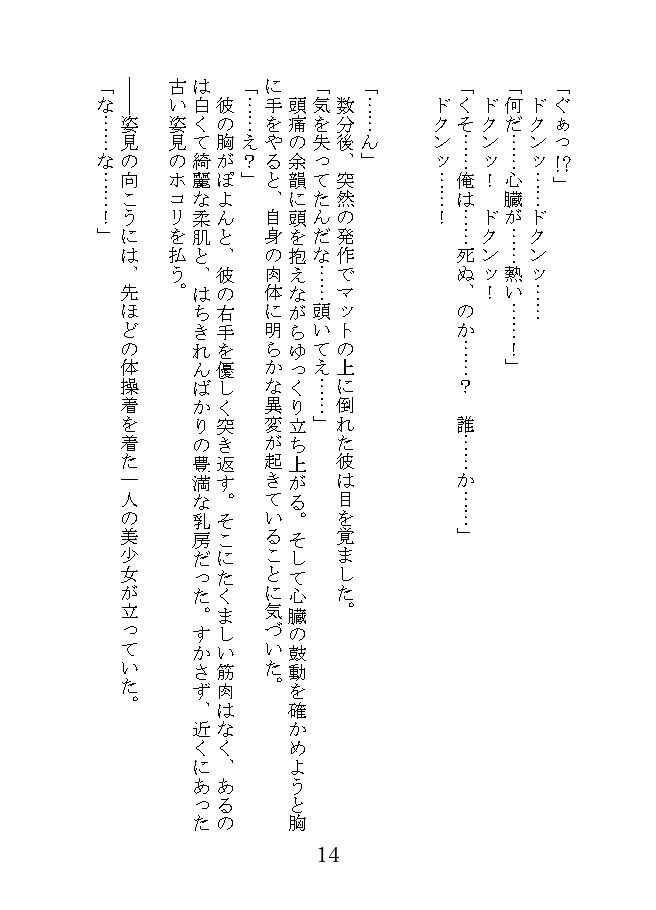 「ぐぁっ!?」
ドクンッ……ドクンッ……
「何だ……心臓が……熱い……！」
ドクンッ！　ドクンッ！
「くそ……俺は……死ぬ、のか……？　誰……か……」
ドクンッ……！
「……ん」
数分後、突然の発作でマットの上に倒れた彼は目を覚ました。
「気を失ってたんだな……頭いてえ……」
頭痛の余韻に頭を抱えながらゆっくり立ち上がる。そして心臓の鼓動を確かめようと胸
に手をやると、自身の肉体に明らかな異変が起きていることに気づいた。
「……え？」
彼の胸がぽよんと、彼の右手を優しく突き返す。そこにたくましい筋肉はなく、あるの
は白くて綺麗な柔肌と、はちきれんばかりの豊満な乳房だった。すかさず、近くにあった
古い姿見のホコリを払う。
――姿見の向こうには、先ほどの体操着を着た一人の美少女が立っていた。
「な……な……！」
14